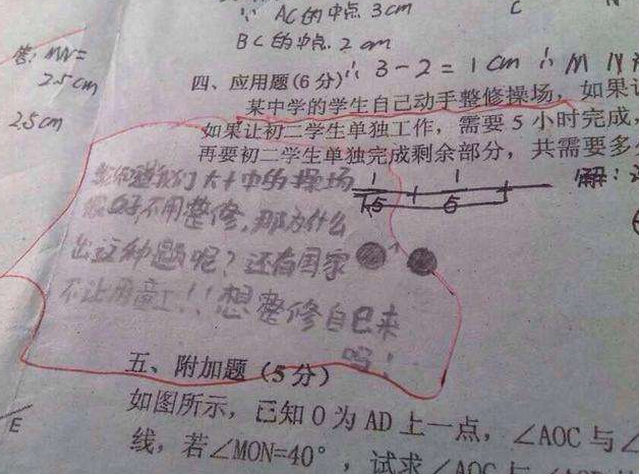 ∵ AC的中点 3cm
C
BC的中点 2cm
答: MN=
2.5cm
∴ 3-2=1cm ∴ M
2.5cm
四、应用题(6分)
某中学的学生自己动手整修操场，如果让
如果让初二学生单独工作，需要5小时完成，
再要初二学生单独完成剩余部分，共需要多
解:
1 1
1.5 5
我们大十中的操场
很好不用整修，那为什么
出这种题呢？还有国家
不让用童工！！想整修自己来
吗！
五、附加题（5分）
如图所示，已知O为AD上一点，∠AOC与∠
E
线，若∠MON=40°，试求∠AOC与